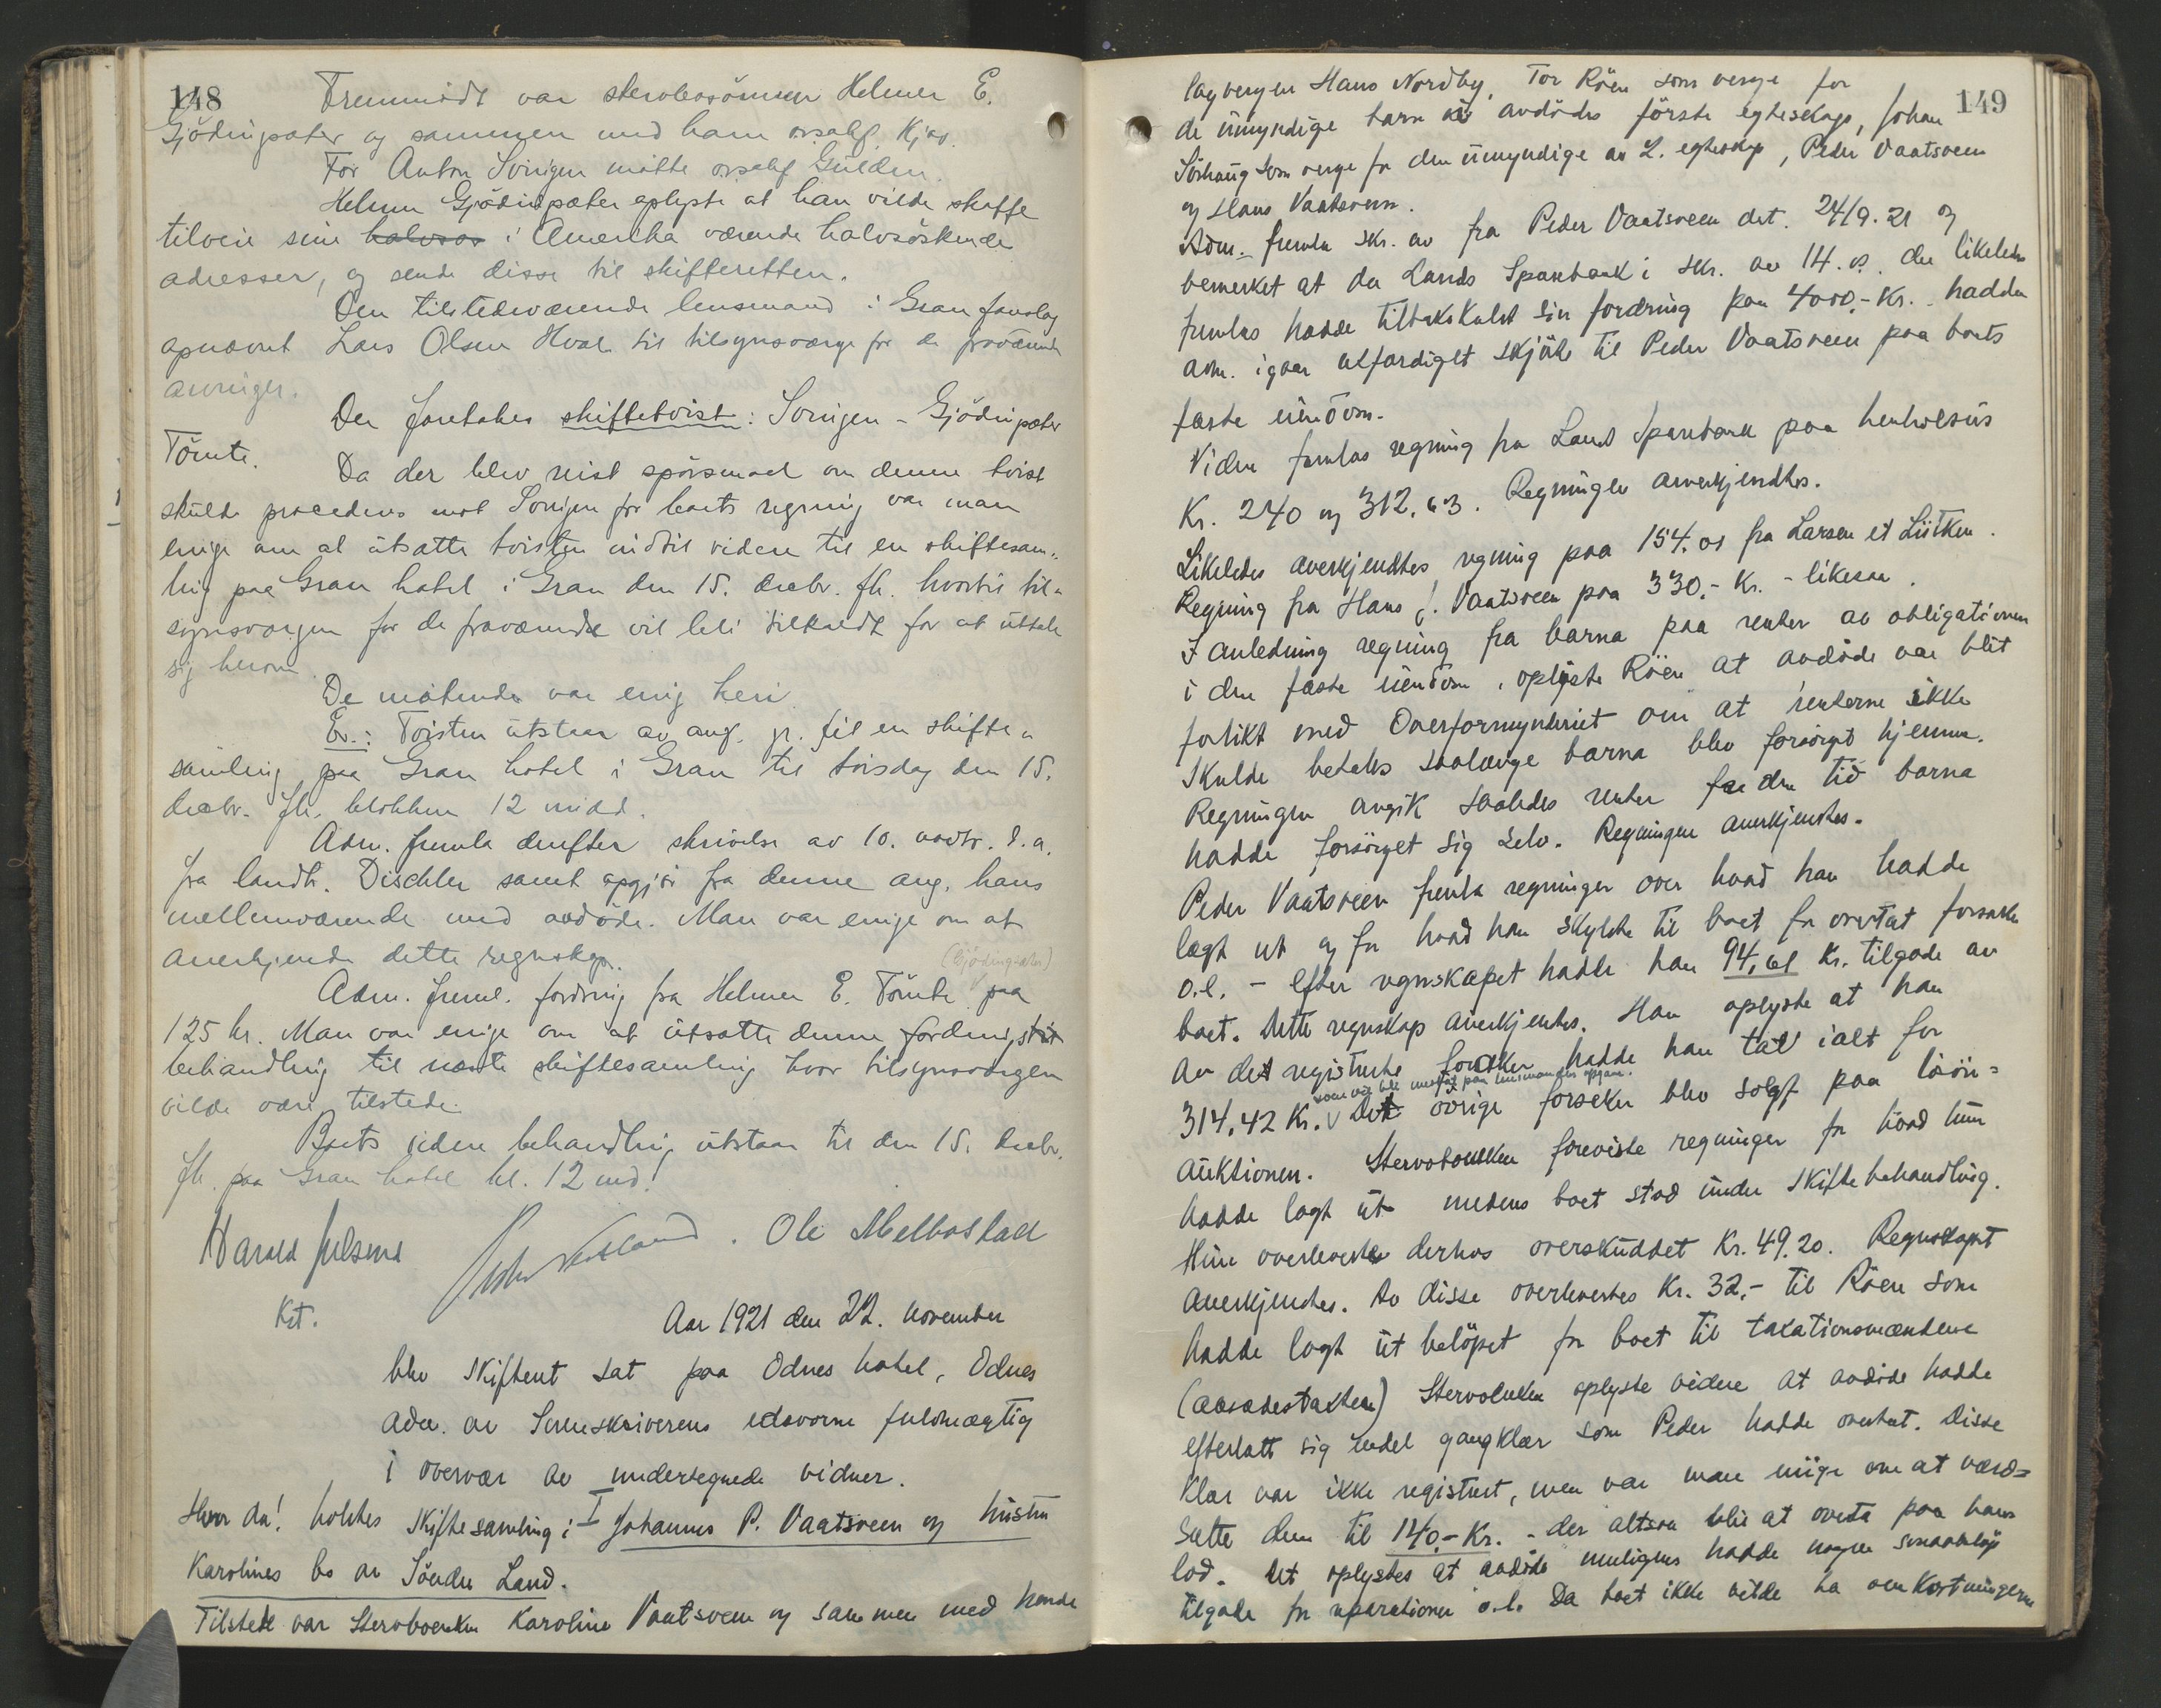 148
Fremmødt var stervbosönnen Helmer E.
Gjödingsæter og sammen med ham orsakf. Kjos.
For Anton Soingen møtte orsakf Gulden.
Helmer Gjödingsæter oplyste at han vilde skaffe
tilveie sine halvsøs i Amerika værende halvsöskendes
adresser, og sende disse til skifteretten.
Den tilstedeværende lensmand i Gran foreslog
opnævnt Lars Olsen Hval til tilsynsværge for de fraværende
arvinger.
Der foretokes skiftetvist: Soingen - Gjödingsæter
Tömte.
Da der blev reist spörsmaal om denne tvist
skulde procederes mot Soingen for boets regning var man
enige om at utsætte tvisten indtil videre til en skiftesam-
ling paa Gran hotel i Gran den 15. decbr. fk. hvortil til-
synsværgen for de fraværende vil bli tilkaldt for at uttale
sig herom.
De møtende var enig heri.
Ev.: Tvisten utstaar av anf. gr. til en skifte-
samling paa Gran hotel i Gran til torsdag den 15.
decbr. fk. klokken 12 midd.
Adm. fremla derefter skrivelse av 10. novbr. d.a.
fra landh. Dischler samt opgjör fra denne ang. hans
mellemværende med avdöde. Man var enige om at
anerkjende dette regnskap.
(Gjödingsæter)
Adm. freml. fordring fra Helmer E. Tömte paa
125 kr. Man var enige om at utsætte denne fordrings
behandling til næste skiftesamling hvor tilsynsværgen
vilde være tilstede.
Boets videre behandling utstaar til den 15. decbr.
fk. paa Gran hotel kl. 12 md!
Harald Julsrud
Ole Melbostad
Kst.
Aar 1921 den 22. november
blev skifteret sat paa Odnes hotel, Odnes
adm. av Sorenskriverens edsvorne fuldmægtig
i overvær av undertegnede vidner.
Hvor da! holdtes skiftesamling i I Johannes P. Vaatsveen og hustru
Karolines bo av Söndre Land.
Tilstede var Stervboenken Karoline Vaatsveen og sammen med hende
149
lagvergen Hans Nordby, Tor Röen som verge for
de umyndige barn av avdödes förste egteskap, Johan
Sörhaug som verge for den umyndige av 2. egteskap, Peder Vaatsveen
og Hans Vaatsveen.
Adm. fremla skr. av fra Peder Vaatsveen dat. 24/9.21 og
bemerket at da Lands Sparebank i skr. av 14. ds. der likeledes
fremlas hadde tilbakekaldt sin fordring paa 4000.- Kr. hadde
adm. igaar utfærdiget skjöte til Peder Vaatsveen paa boets
faste eiendom.
Videre fremlas regning fra Land Sparebank paa henholdsvis
Kr. 240 og 312.63. Regninger anerkjendtes.
Likeledes anerkjendtes regning paa 154.01 fra Larsen et Lütken.
Regning fra Hans J. Vaatsveen paa 330.- Kr. - likesaa.
I anledning regning fra barna paa renter av obligationen
i den faste eiendom, oplyste Röen at avdöde var blit
forlikt med Overformynderiet om at renterne ikke
skulde betales saalænge barna blev forsörget hjemme.
Regningen angik saaledes renter for den tid barna
hadde forsörget sig selv. Regningen anerkjendtes.
Peder Vaatsveen fremla regninger over hvad han hadde
lagt ut og for hvad han skyldte til boet for overtat forsaker
o.l. - Efter regnskapet hadde han 94,61 Kr. tilgode av
boet. Dette regnskap anerkjendtes. Han oplyste at han
av det registrerte hadde han tat ialt for
som vil bli
314.42 Kr. Det övrige blev solgt paa löröre-
auktionen. Stervboenken foreviste regninger for hvad hun
hadde lagt ut medens boet stod under skiftebehandling.
Hun overleverte derhos overskuddet Kr. 49.20. Regnskapet
anerkjendtes. Av disse overlevertes Kr. 32,- til Röen som
hadde lagt ut belöpet for boet til taxationsmændene
(aasædestaksten) Stervboenken oplyste videre at avdöde hadde
efterlatt sig endel gangklær som Peder hadde overtat. Disse
klær var ikke registrert, men var man enige om at værd-
sætte dem til 140.- Kr. - der altsaa blir at overta paa hans
lod. Det oplystes at avdöde muligens hadde nogen smaabelöp
tilgode for reparationer o.l. Da boet ikke vilde ha omkostningerne